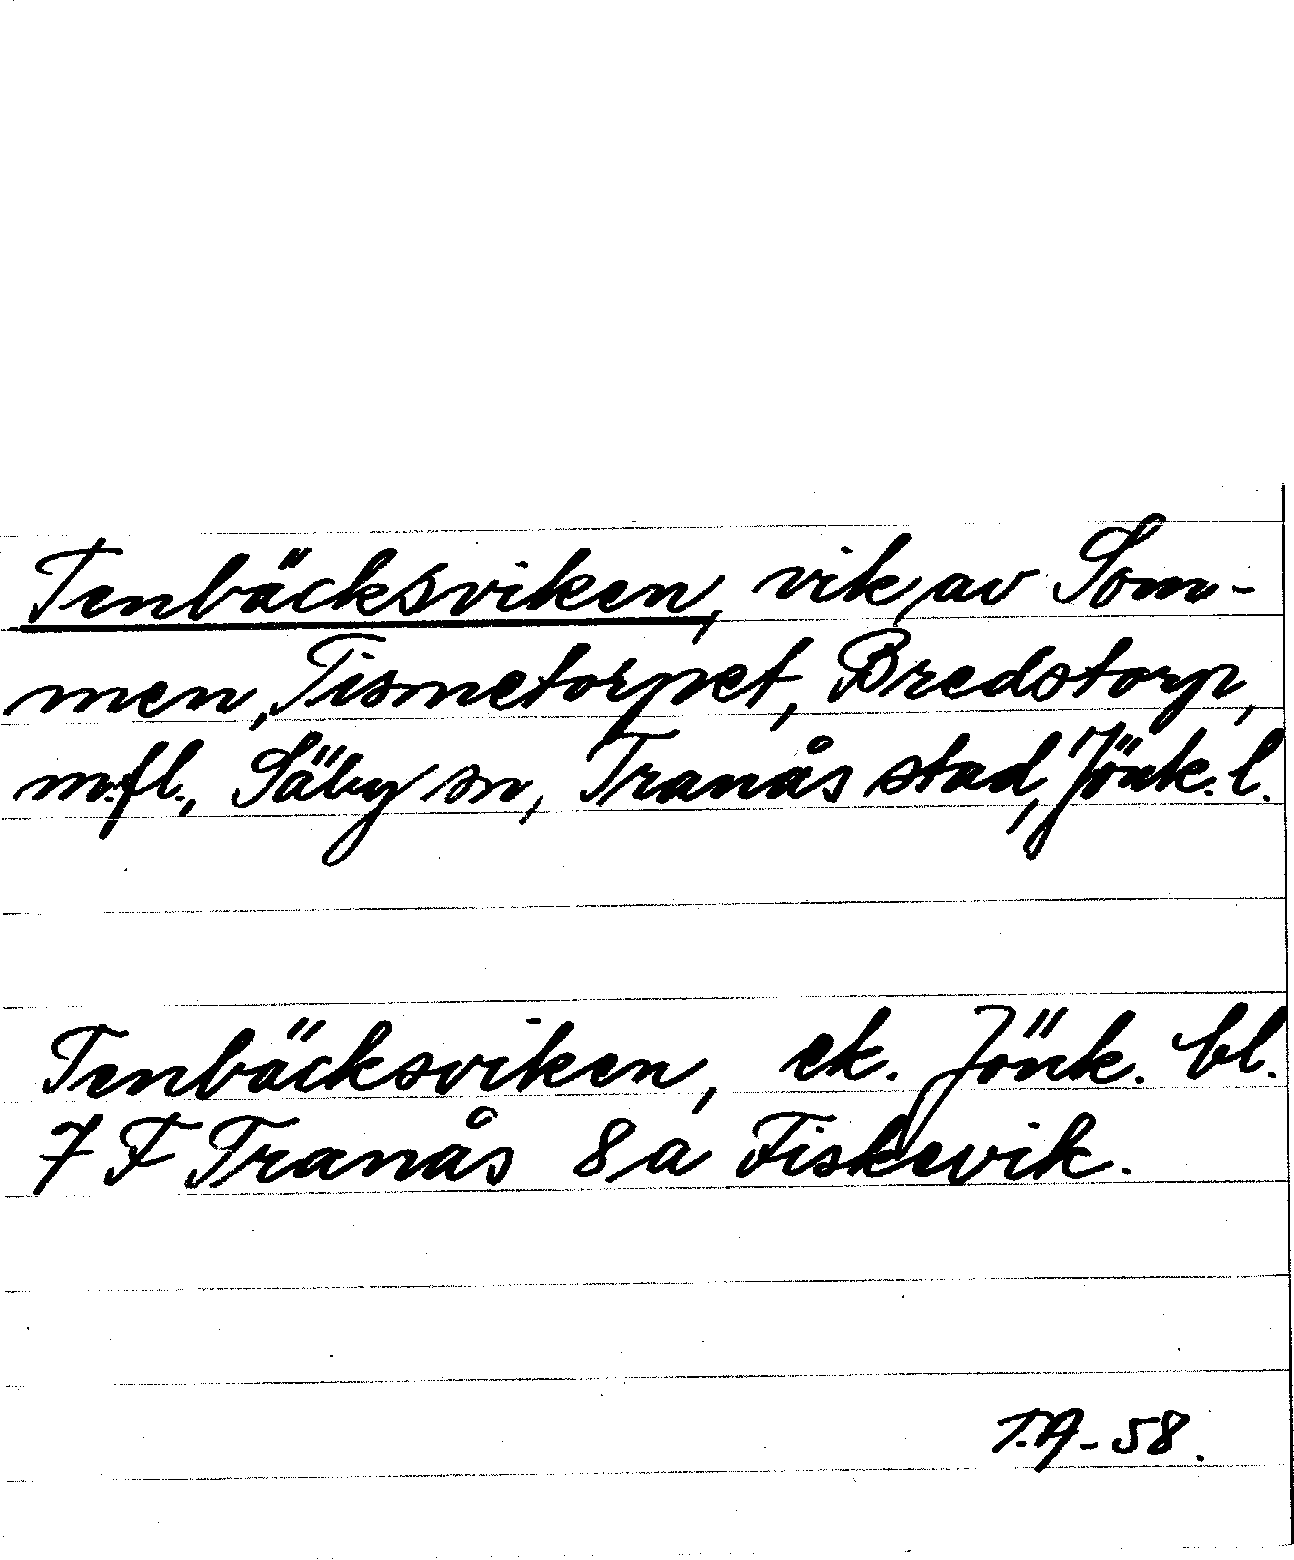 Tenbäcksviken, vik av Som-
men, Tismetorpet, Bredstorp,
m.fl., Säby sn, Tranås stad, Jönk. l.
Tenbäcksviken, ek. Jönk. bl.
7 F Tranås 8 a Fiskevik.
T.A-58.